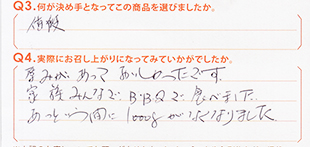 Q3.何が決め手となってこの商品を選びましたか。
価格
Q4.実際にお召し上がりになってみていかがでしたか。
厚みがあっておいしかったです。
家族みんなで、B・B・Qで食べました。
あっという間に1000gがなくなりました